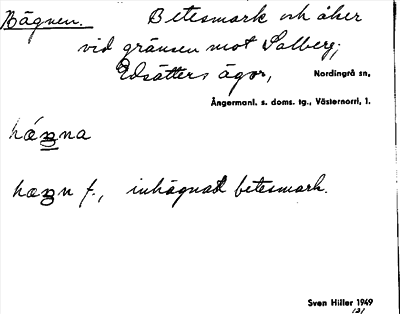 Hägnen. Betesmark och åker
vid gränsen mot Salberg;
Edsätters ägor, Nordingrå sn,
Ångermanl. s. doms. tg., Västernorrl. l.
hæŋn f., inhägnad betesmark.
Sven Hiller 1949